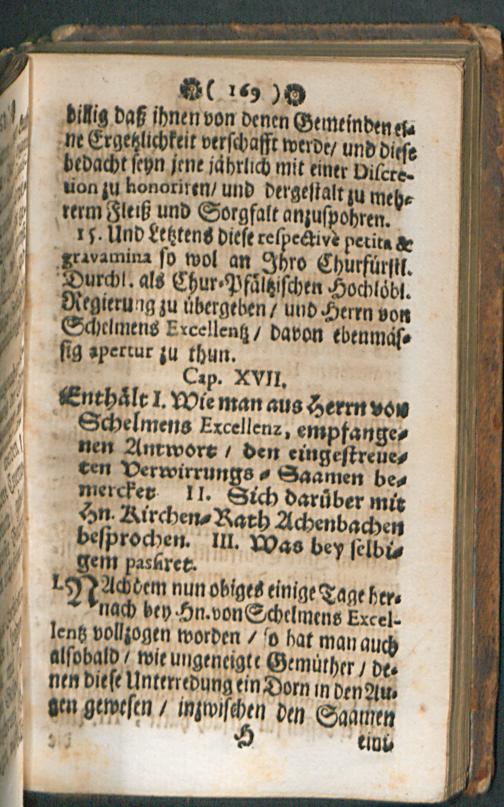 ( 169 )
billig daß ihnen von denen Gemeinden ei-
ne Ergetzlichkeit verschafft werde/ und diese
bedacht seyn jene jährlich mit einer Discre-
tion zu honoriren/ und dergestalt zu meh-
rerm Fleiß und Sorgfalt anzuspohren.
15. Und Letztens diese respectivè petita &
gravamina so wol an Ihro Churfürstl.
Durchl. als Chur-Pfältzischen Hochlöbl.
Regierung zu übergeben / und Herrn von
Schelmens Excellentz / davon ebenmäs-
sig apertur zu thun.
Cap. XVII.
Enthält I. Wie man aus Herrn von
Schelmens Excellenz, empfange-
nen Antwort / den eingestreue-
ten Verwirrungs-Saamen be-
mercket II. Sich darüber mit
Hn. Kirchen-Rath Achenbachen
besprochen. III. Was bey selbi-
gem passiret.
I. NAchdem nun obiges einige Tage her-
nach bey Hn. von Schelmens Excel-
lentz vollzogen worden / so hat man auch
alsobald / wie ungeneigte Gemüther / de-
nen diese Unterredung ein Dorn in den Au-
gen gewesen / inzwischen den Saamen
H eini-